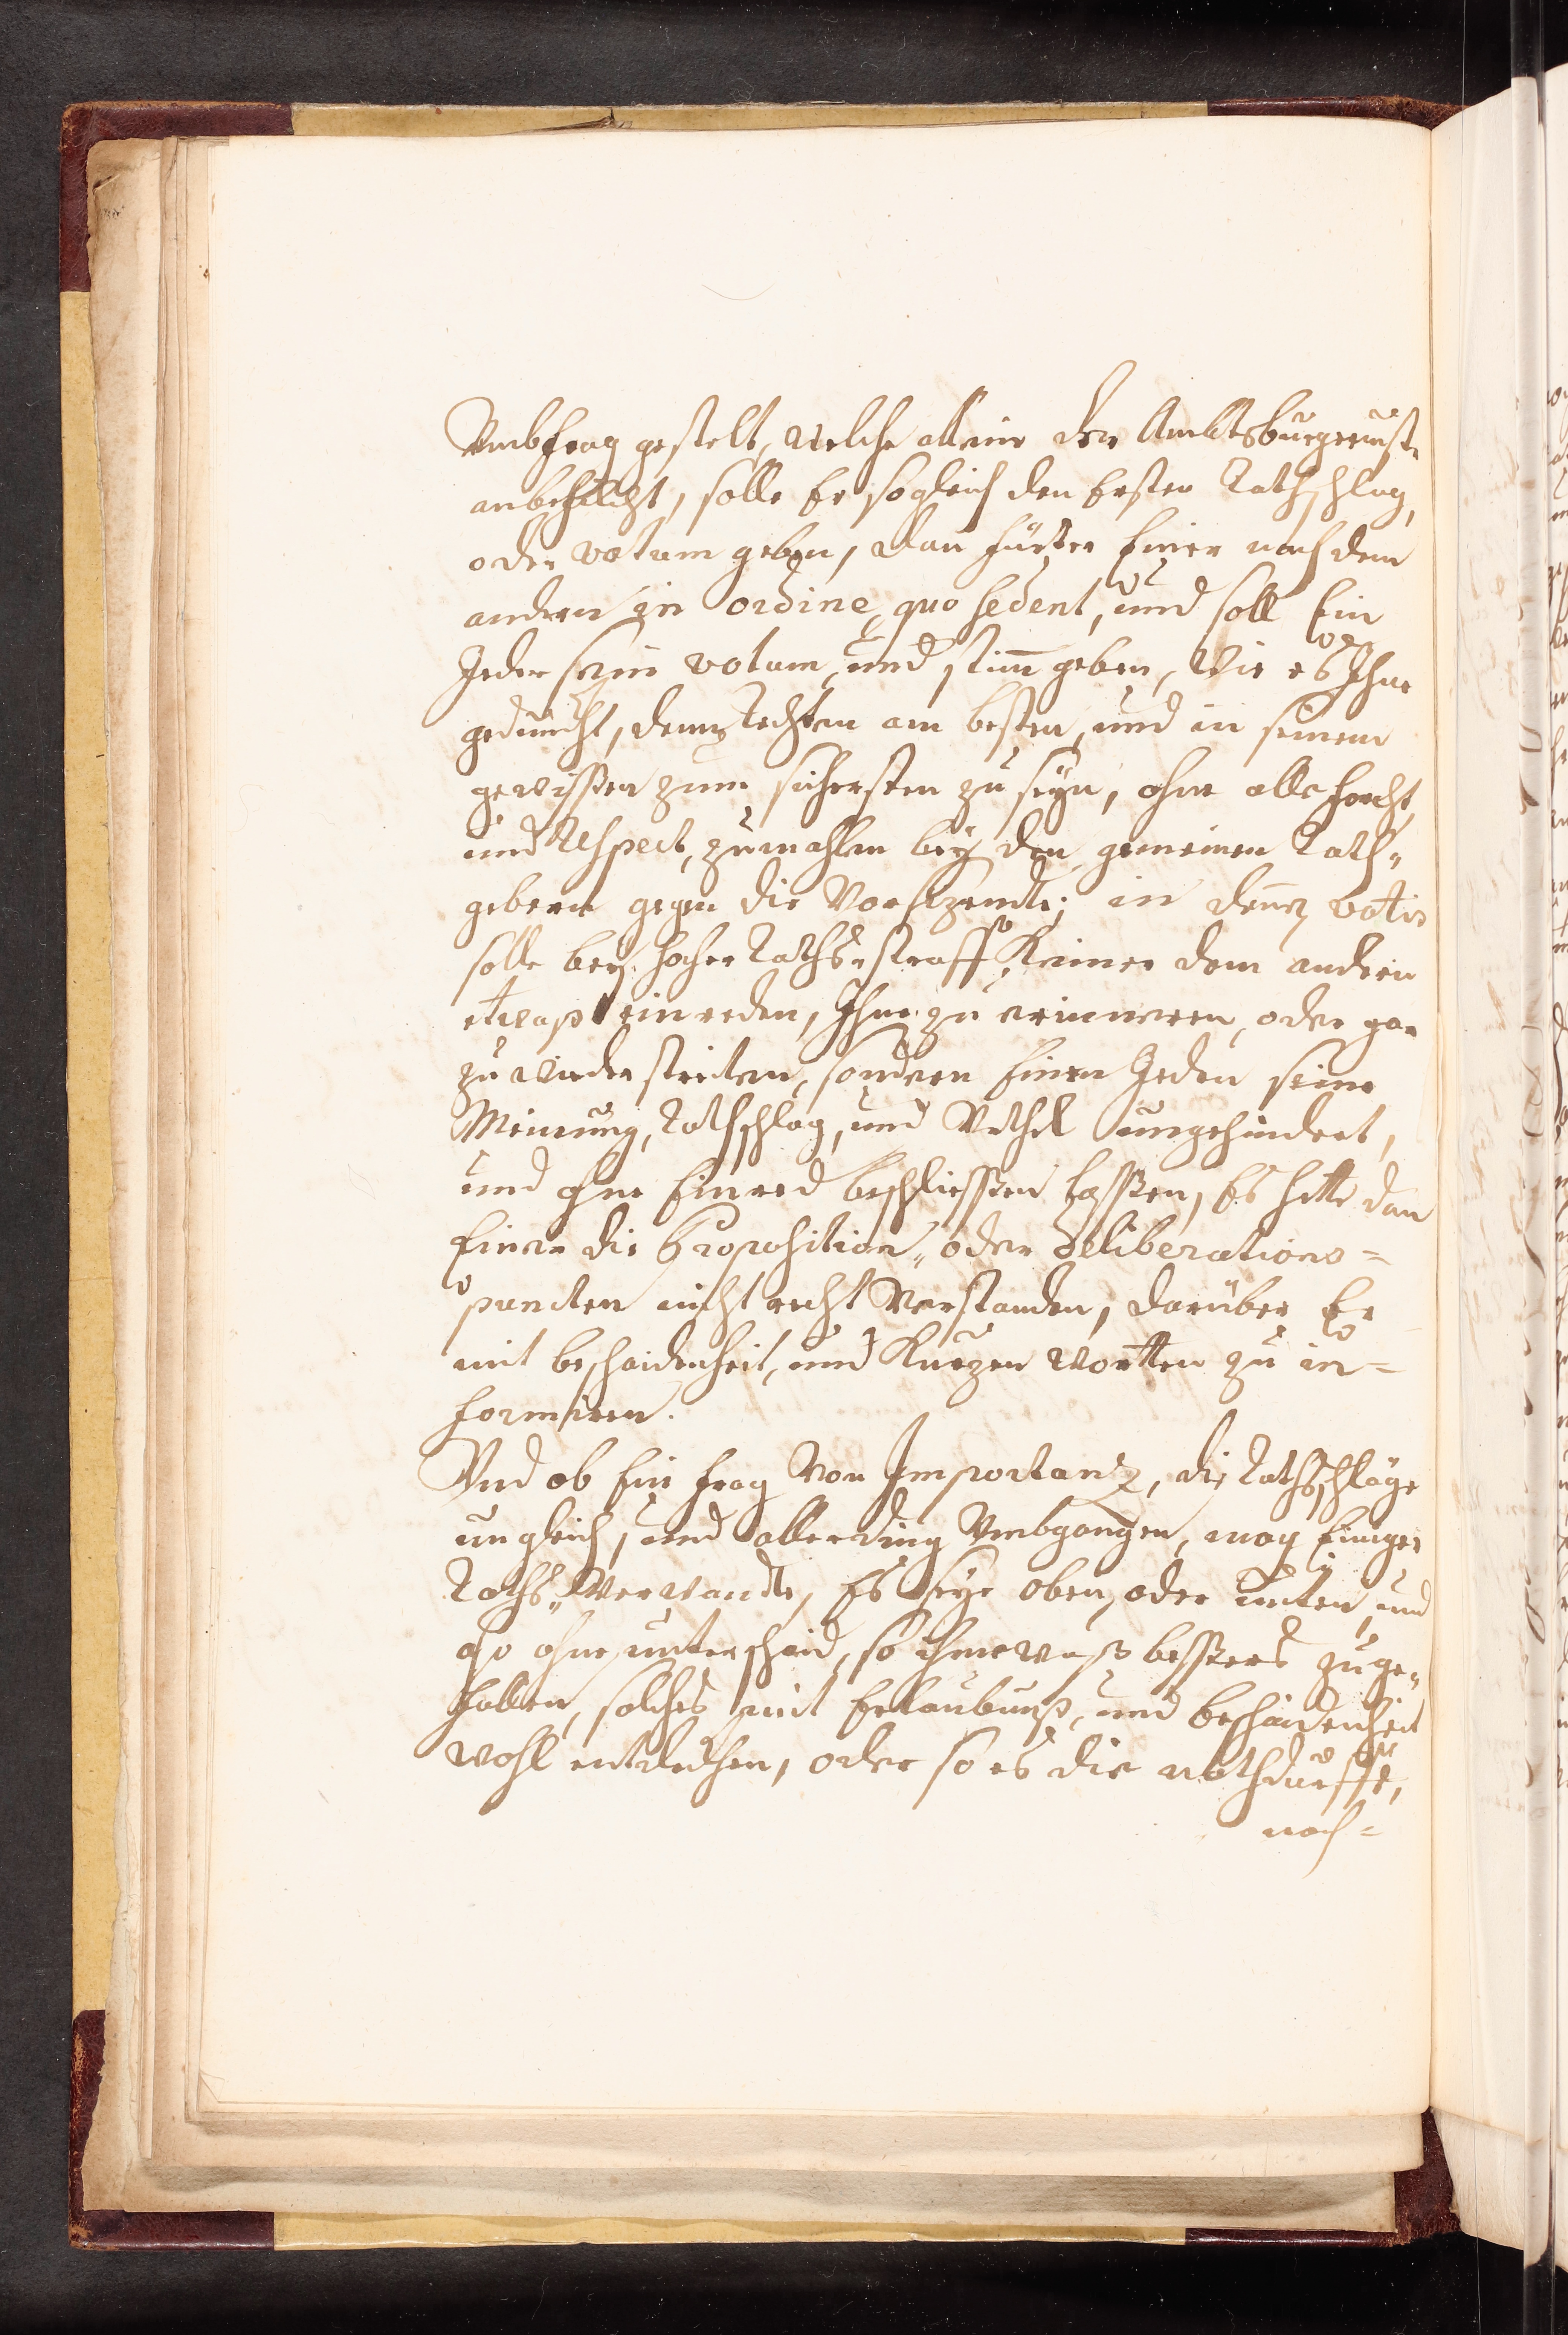 Umbfrag gestelt, welche allein der Ambtsburgermst.
anbefilcht, solle Er sogleich den Ersten Rathschlag,
oder votum geben, dan fürter Einer nach dem
andern in ordine, quo sedent, und soll Ein
Jeder sein votum, und stim̄ geben, wie es Ihne
geduncht, dem Rechten am besten, und in seinem
gewissen zum sichersten zu seyn, ohne alle forcht,
und Respect, zumahlen bey den gemeinen Rath„
gebern gegen die Vorsizendte; in denen votis
solle bey hocher Raths straff Keiner dem andern
etwaß einreden, Ihne zu erinneren, oder gar
zu widerstreiten, sondern Einen Jeden seine
Meinung, Rathschlag, und Urthel ungehindert,
und ohne Einred beschliessen lassen, Es hette dan
Einer die Proposition„ oder deliberations=
puncten nicht recht Verstanden, darüber Er
mit bescheidenheit, und Kurzen Wortten zu in=
formiren.
Und ob Ein frag Von Importanz, die Rathschläge
ungleich, und allerding Umbgangen, mag Einiger
Raths„ Verwandte, Es seye oben, oder unten, und
also ohne unterscheid, so ihme waß bessers zuge„
fallen, solches mit Erlaubnuß, und bescheidenheit
wohl entdechen, oder so es die nothdurfft,
nach=